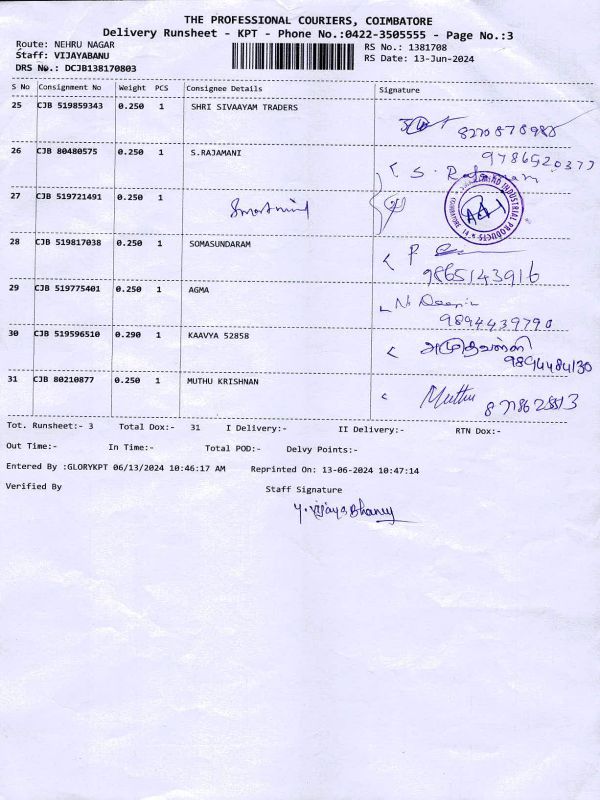 THE PROFESSIONAL COURIERS, COIMBATORE
Delivery Runsheet - KPT - Phone No.:0422-3505555 - Page No.:3
Route: NEHRU NAGAR RS No.: 1381708
Staff: VIJAYABANU RS Date: 13-Jun-2024
DRS No.: DCJB138170803
S No Consignment No Weight PCS Consignee Details Signature
25 CJB 519859343 0.250 1 SHRI SIVAAYAM TRADERS 8270878988
26 CJB 80480575 0.250 1 S.RAJAMANI 9786520377
S. Rajamani
27 CJB 519721491 0.250 1 Smartmind
28 CJB 519817038 0.250 1 SOMASUNDARAM
9865143916
29 CJB 519775401 0.250 1 AGMA
9894439790
30 CJB 519596510 0.290 1 KAAVYA 52858 அமுதவள்ளி
9894484130
31 CJB 80210877 0.250 1 MUTHU KRISHNAN Muthu
Tot. Runsheet:- 3 Total Dox:- 31 I Delivery:- II Delivery:- RTN Dox:-
Out Time:- In Time:- Total POD:- Delvy Points:-
Entered By :GLORYKPT 06/13/2024 10:46:17 AM Reprinted On: 13-06-2024 10:47:14
Verified By Staff Signature